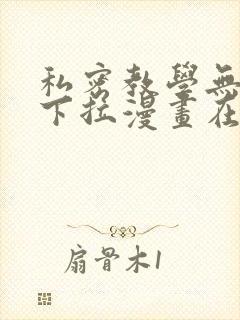 私密教學無
下拉漫畫在
扇骨木1